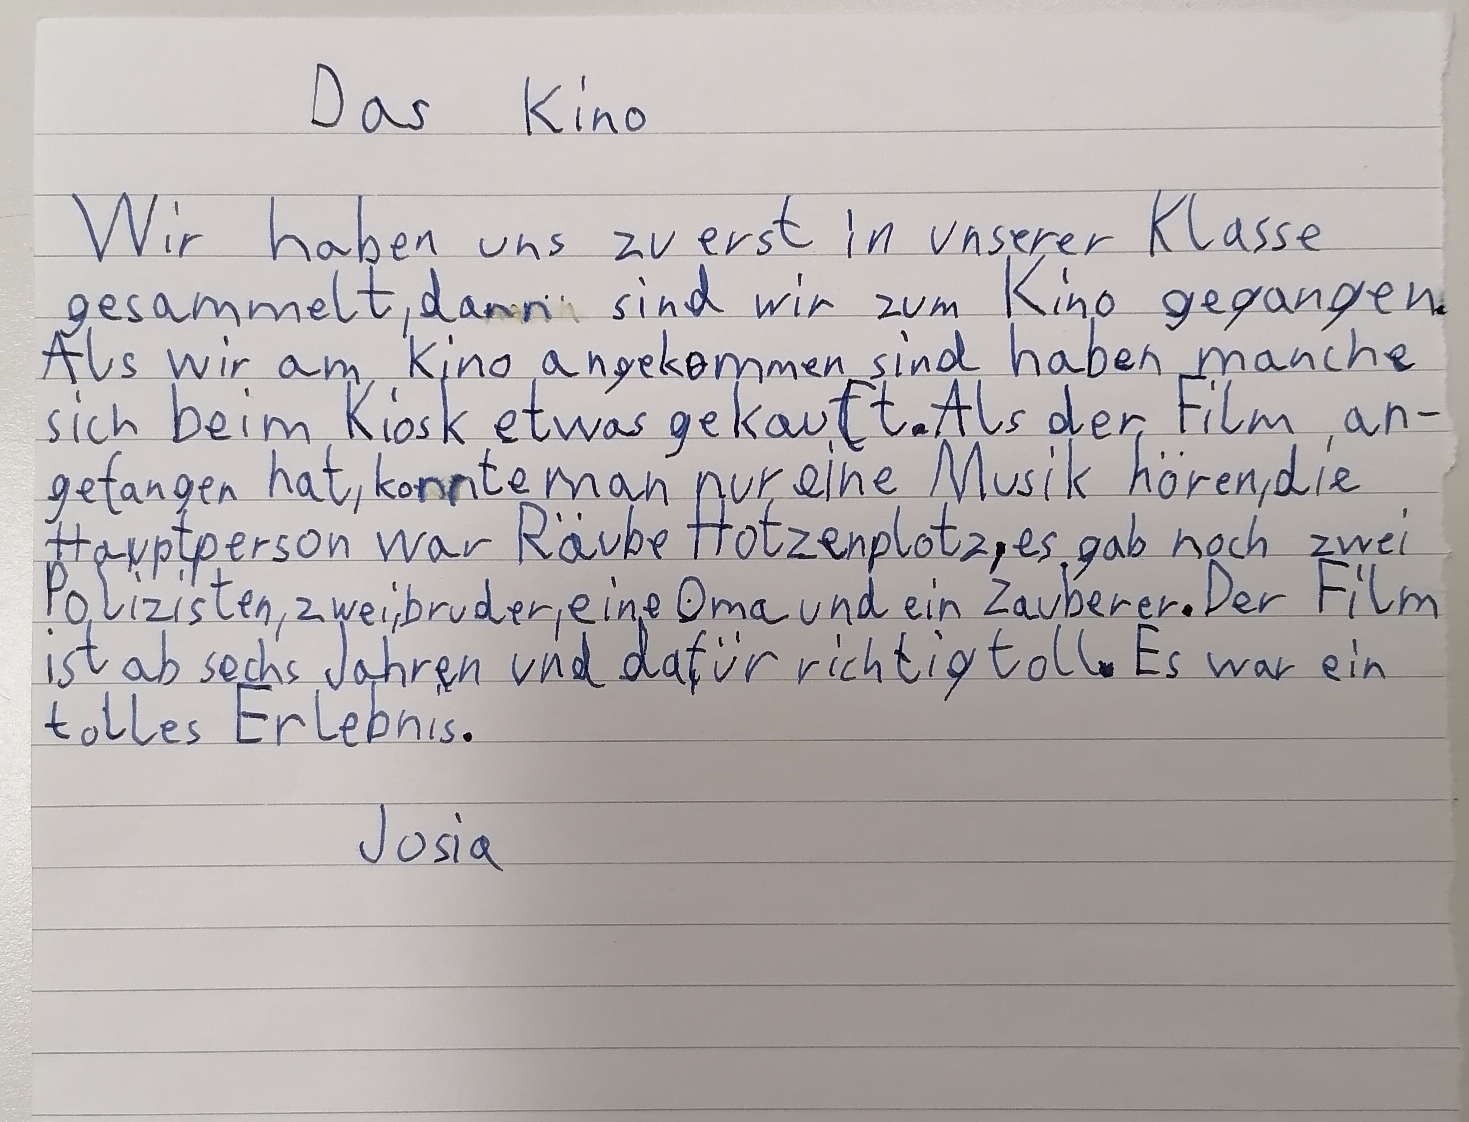 Das Kino
Wir haben uns zu erst in unserer Klasse
gesammelt, dann sind wir zum Kino gegangen.
Als wir am Kino angekommen sind haben manche
sich beim Kiosk etwas gekauft. Als der Film an-
gefangen hat, konnte man nur eine Musik hören, die
Hauptperson war Räube Hotzenplotz, es gab noch zwei
Polizisten, zwei, bruder, eine Oma und ein Zauberer. Der Film
ist ab sechs Jahren und dafür richtig toll. Es war ein
tolles Erlebnis.
Josia